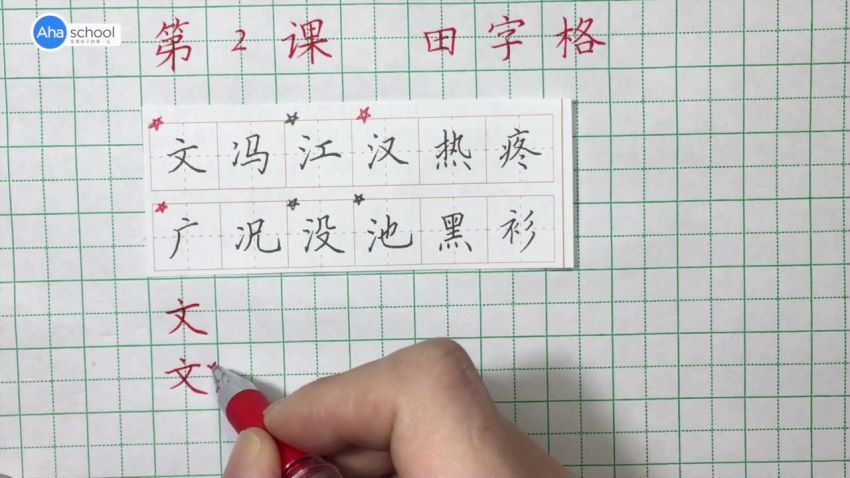 Aha school
第 2 课 田字格
文 冯 江 汉 热 疼
广 况 没 池 黑 衫
文
文